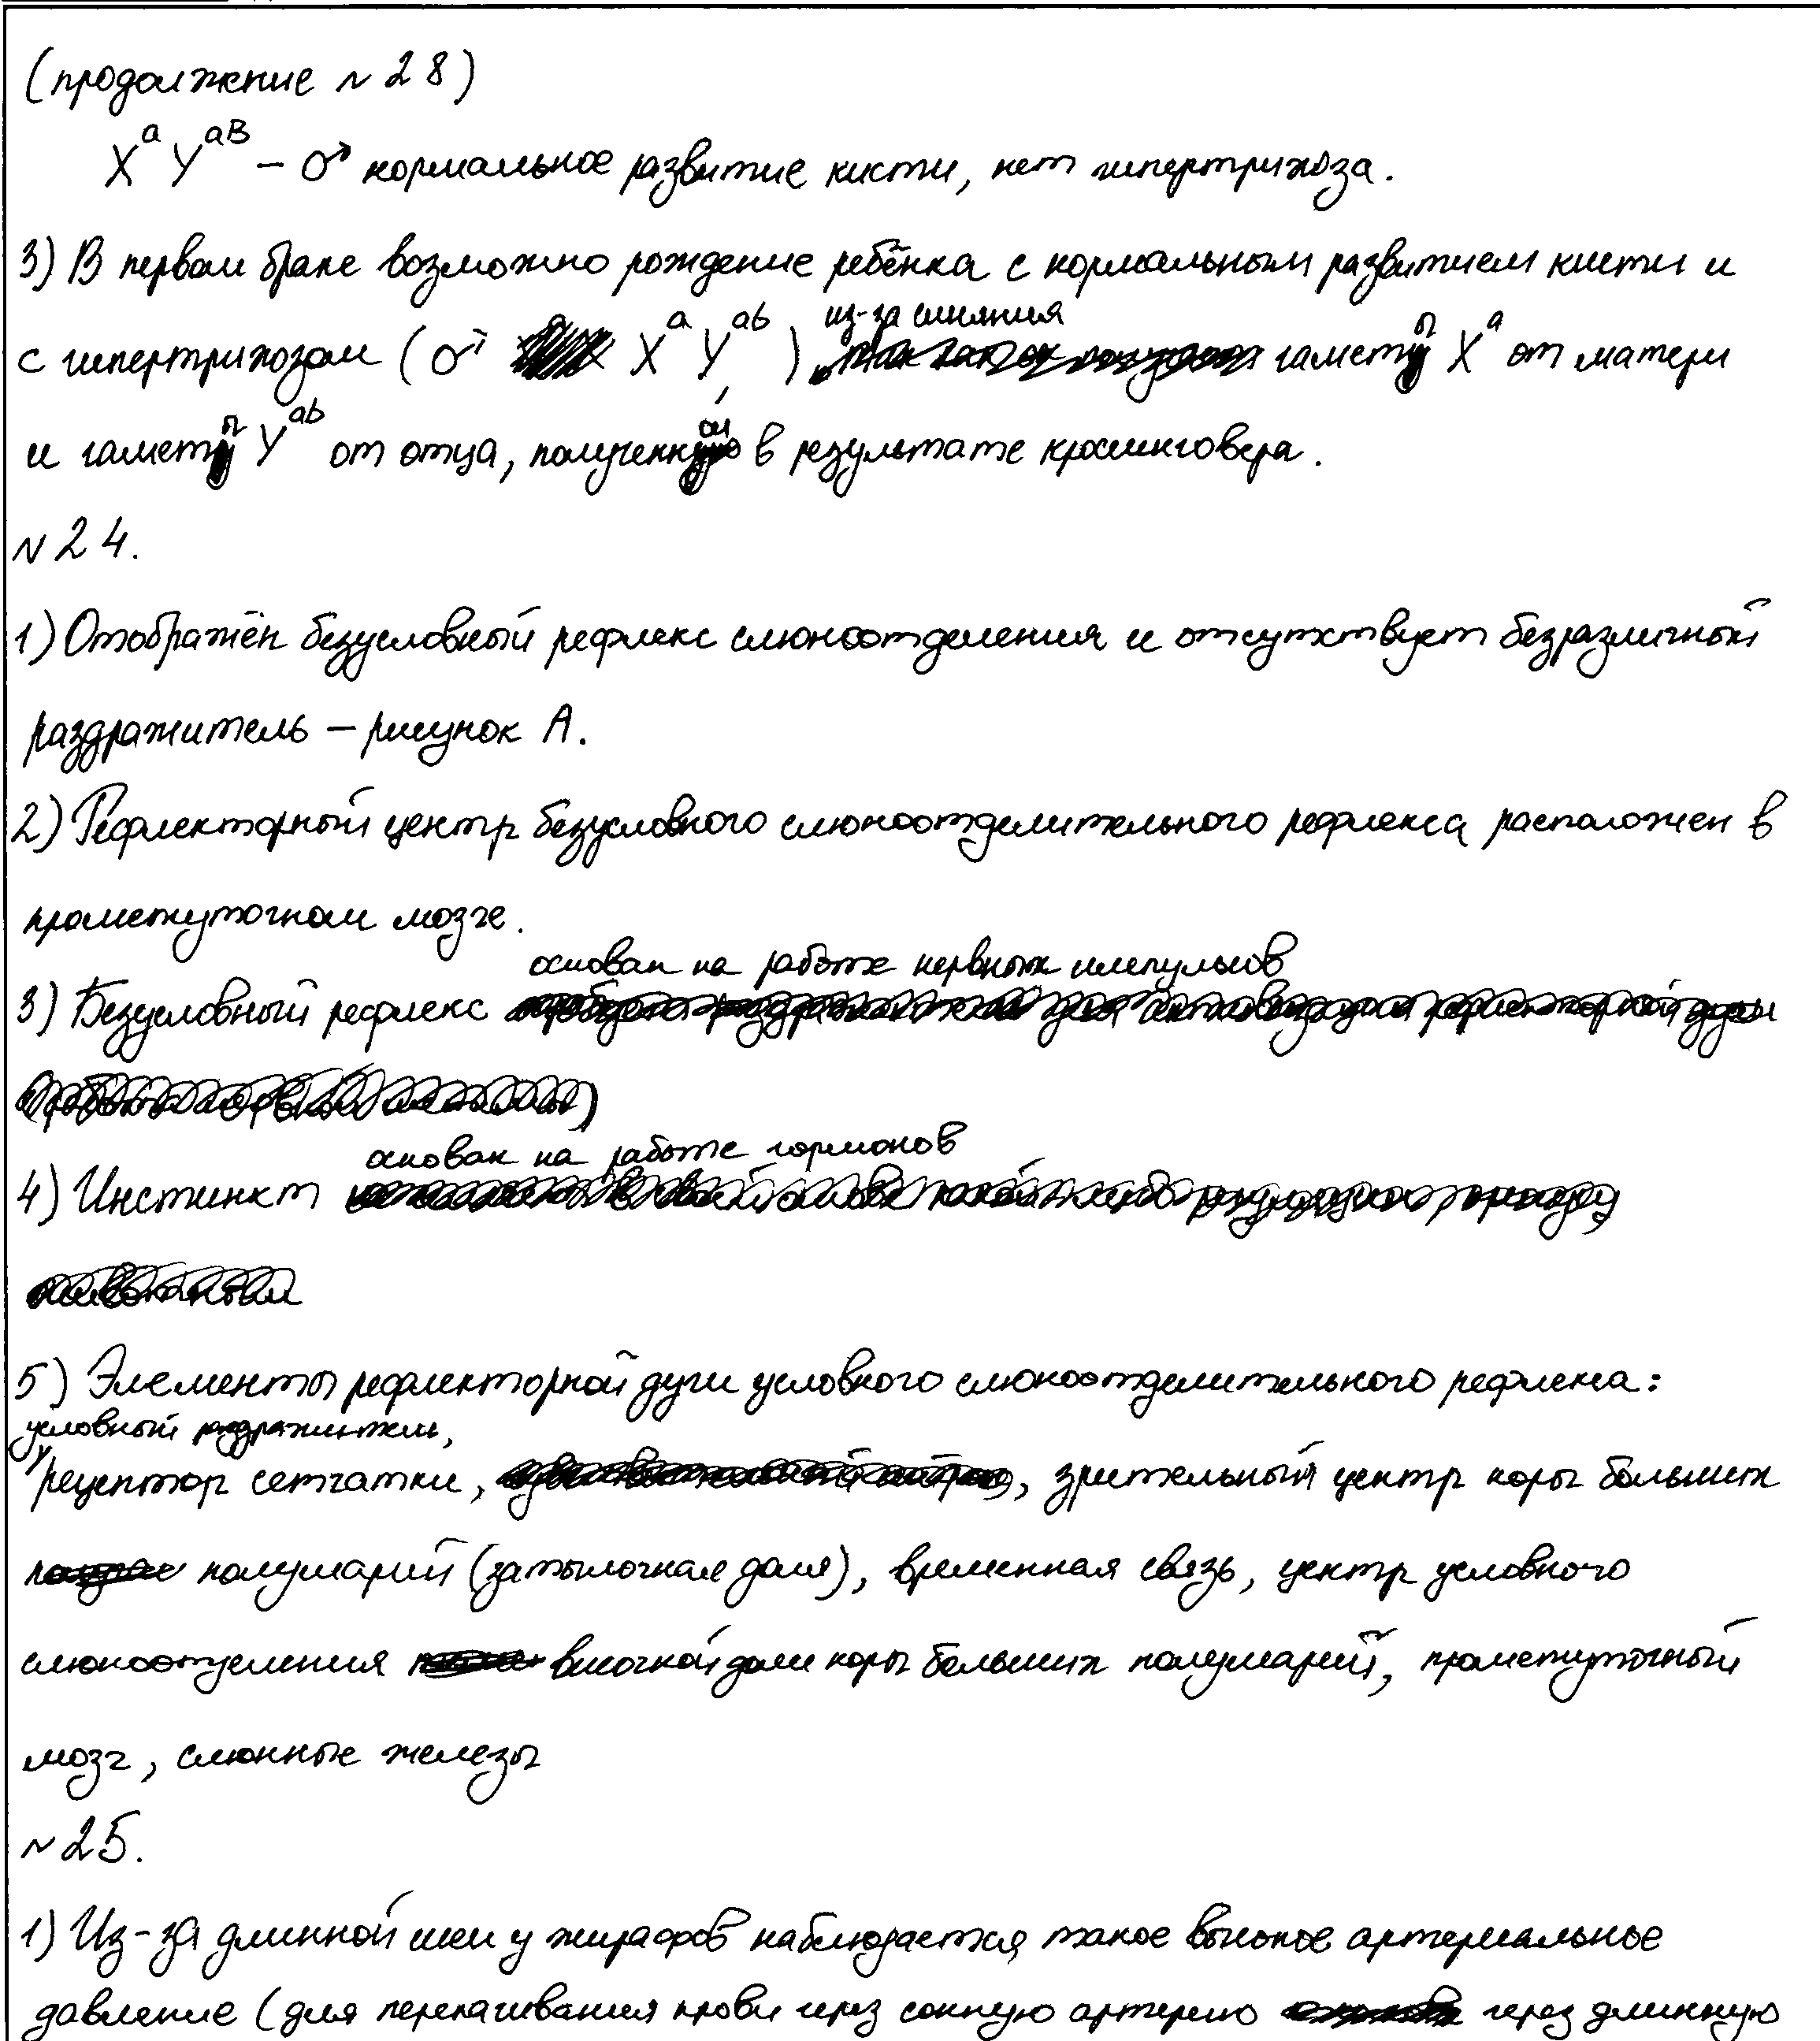 (продолжение №28)
XᵃYᵃᴮ – ♂ нормальное развитие кисти, нет гипертрихоза.
3) В первом браке возможно рождение ребёнка с нормальным развитием кисти и
из-за слияния
с гипертрихозом (♂ XᵃYᵃᵇ), гамет Xᵃ от матери
и гамет Yᵃᵇ от отца, полученный в результате кроссинговера.
№24.
1) Отображён безусловный рефлекс слюноотделения и отсутствует безразличный
раздражитель – рисунок А.
2) Рефлекторный центр безусловного слюноотделительного рефлекса расположен в
промежуточном мозге.
основан на работе нервных импульсов
3) Безусловный рефлекс
основан на работе гормонов
4) Инстинкт
5) Элементы рефлекторной дуги условного слюноотделительного рефлекса:
условный раздражитель,
рецептор сетчатки, , зрительный центр коры больших
полушарий (затылочная доля), временная связь, центр условного
слюноотделения височной доли коры больших полушарий, промежуточный
мозг, слюнные железы
№25.
1) Из-за длинной шеи у жирафов наблюдается такое высокое артериальное
давление (для перекачивания крови через сонную артерию через длинную